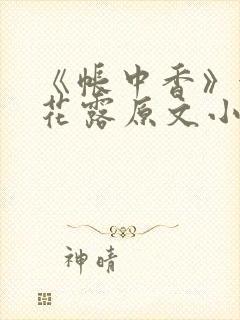 《帐中香》
花露原文小
神晴